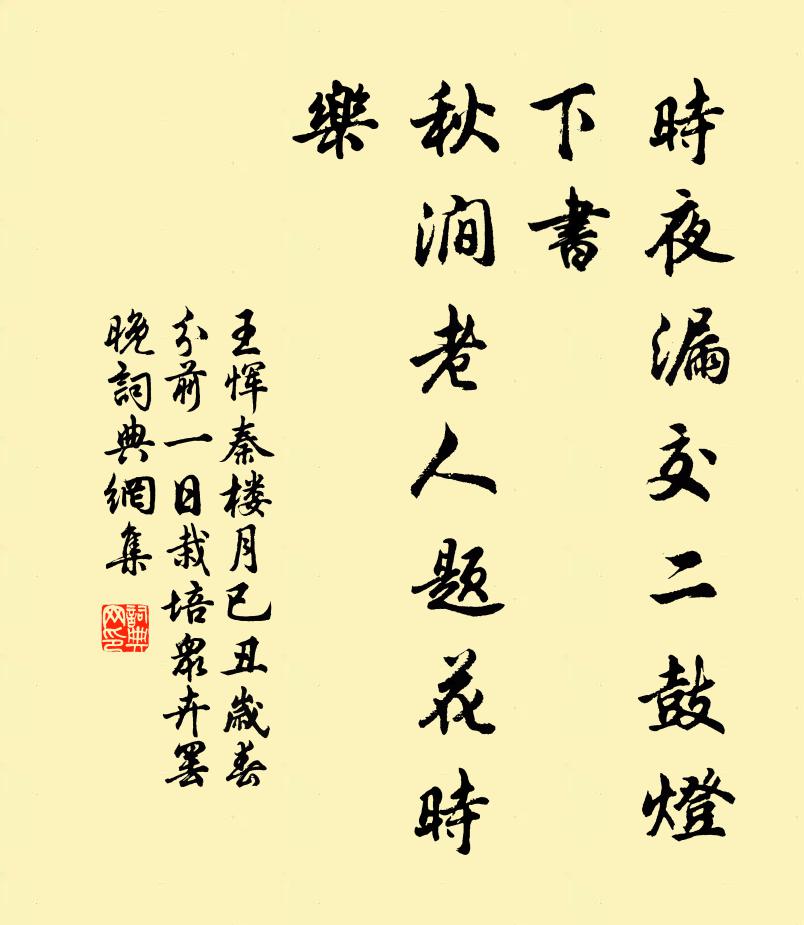 時夜漏交二鼓燈
下書
秋澗老人题花時
樂
王恽秦楼月已丑歲春
分前一日栽培眾卉罢
晚詞典網集
詞典
网印